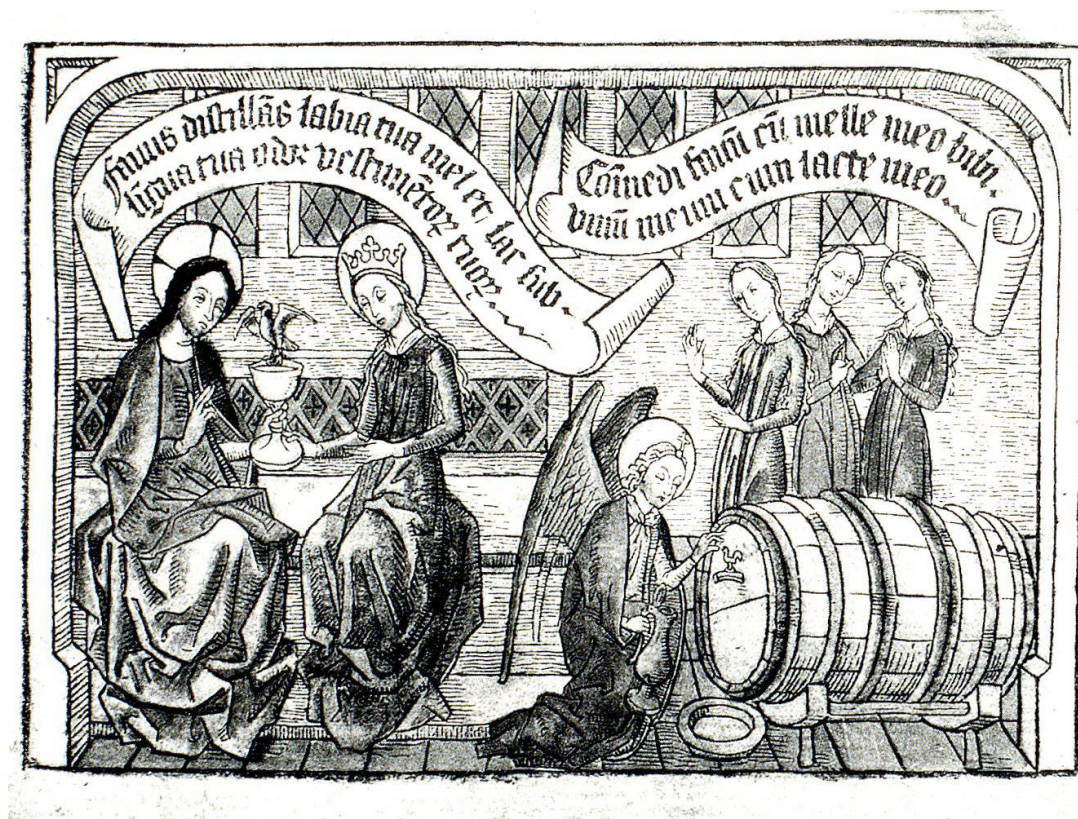 fauus distillās labia tua mel et lac sub.
līgua tua odor vestimētoꝝ tuoꝝ
Cōmedi fauū cū melle meo bibi.
vinū meum cum lacte meo